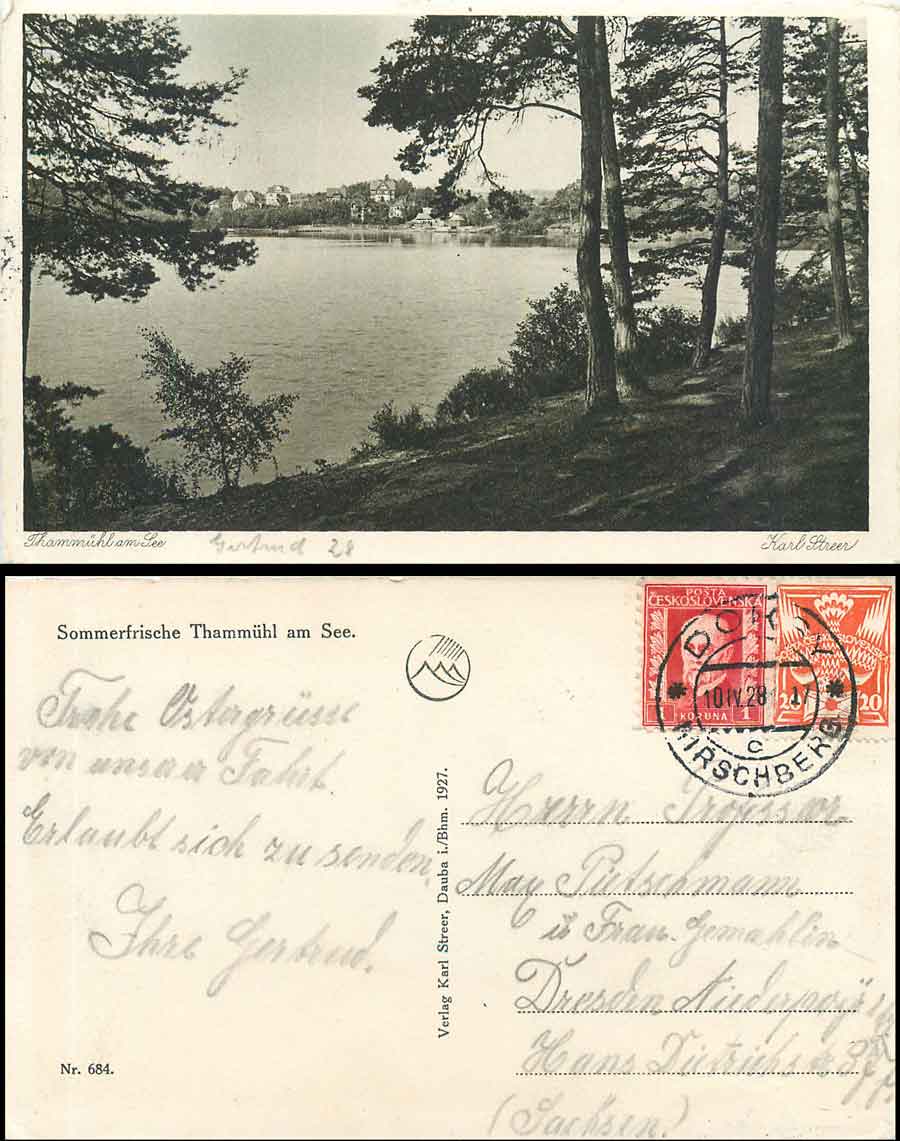 Thammühl am See
Gertrud 28
Karl Streer
Sommerfrische Thammühl am See.
POSTA
ČESKOSLOVENSKÁ
KORUNA 1
POSTA ČESKOSLOVENSKÁ
20 20
DOKSY
10 IV. 28
C
HIRSCHBERG
Frohe Ostergrüsse
von unsrer Fahrt
Erlaubt sich zu senden,
Ihre Gertrud.
Verlag Karl Streer, Dauba i./Bhm. 1927.
Herrn
Max Pietschmann
u Frau Gemahlin
Dresden
Hans
(Sachsen)
Nr. 684.